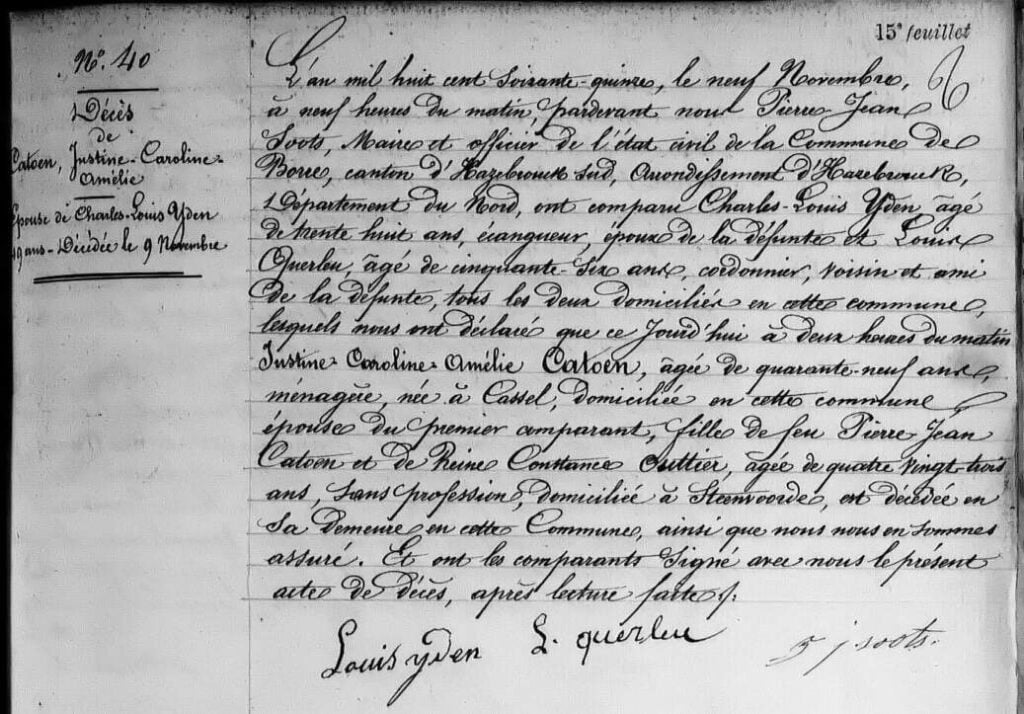 15e feuillet
No. 40
Décès
de
Catoen, Justine-Caroline-
Amélie
Epouse de Charles-Louis Yden
49 ans - Décédée le 9 Novembre
L'an mil huit cent soixante-quinze, le neuf Novembre,
à neuf heures du matin, pardevant nous Pierre Jean
Soots, Maire et officier de l'état civil de la Commune de
Borre, canton d'Hazebrouck sud, Arrondissement d'Hazebrouck,
Département du Nord, ont comparu Charles-Louis Yden, âgé
de trente huit ans, écangueur, époux de la défunte et Louis
Querleu, âgé de cinquante-six ans, cordonnier, voisin et ami
de la défunte, tous les deux domiciliés en cette commune,
lesquels nous ont déclaré que ce jourd'hui à deux heures du matin
Justine-Caroline-Amélie Catoen, âgée de quarante-neuf ans,
ménagère, née à Cassel, domiciliée en cette commune
épouse du premier comparant, fille de feu Pierre Jean
Catoen et de Reine Constance, âgée de quatre vingt-trois
ans, sans profession, domiciliée à Steenvoorde, est décédée en
sa demeure en cette Commune, ainsi que nous nous en sommes
assuré. Et ont les comparants signé avec nous le présent
acte de décès, après lecture faite.
Louis yden L. querleu p j soots.